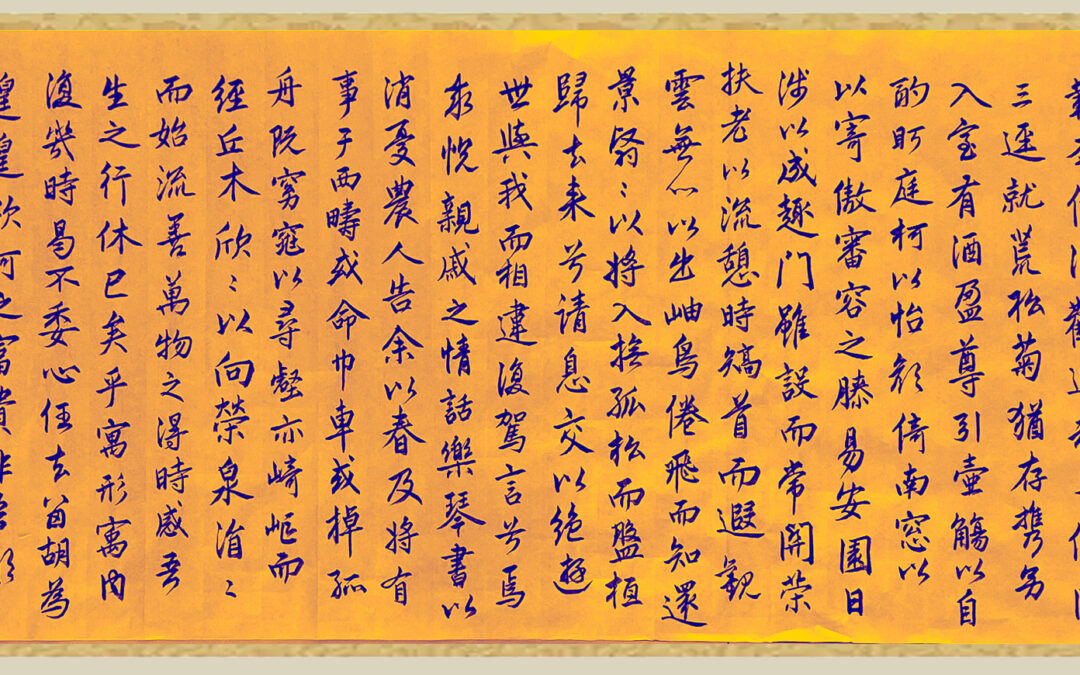 三逕就荒松菊猶存携幼
入室有酒盈尊引壺觴以自
酌眄庭柯以怡顏倚南窓以
以寄傲審容之膝易安園日
涉以成趣門雖設而常開榮
扶老以流憩時矯首而遐觀
雲無心以出岫鳥倦飛而知還
景翳〻以將入撫孤松而盤桓
歸去来兮請息交以绝遊
世與我而相違復駕言兮焉
求悦親戚之情話樂琴書以
消憂農人告余以春及將有
事于西疇或命巾車或棹孤
舟既窈窕以尋壑亦崎嶇而
經丘木欣〻以向榮泉涓〻
而始流善萬物之得時感吾
生之行休已矣乎寓形寓內
復幾時曷不委心任去留胡為
遑遑欲何之富貴非吾願